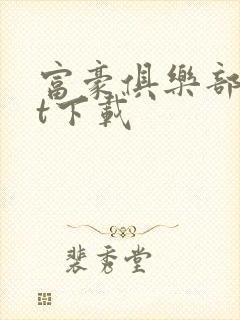 富豪俱樂部
t下載
裴秀堂